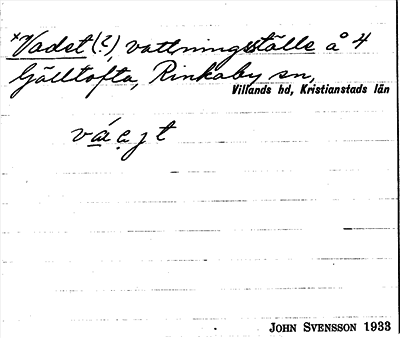 *Vadet (?), vattningsställe å 4
Gälltofta, Rinkaby sn,
Villands hd, Kristianstads län
JOHN SVENSSON 1933